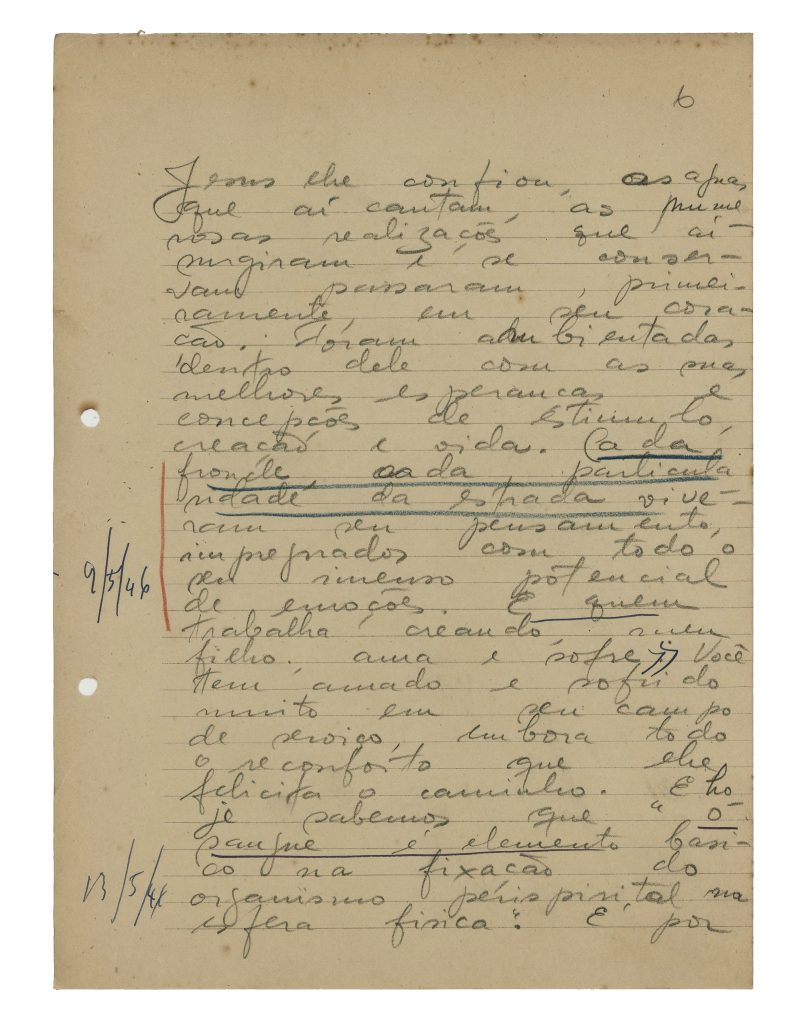 6
Jesus lhe confiou, as aguas
que aí cantam, as nume
rosas realizações que aí
surgiram e se conser-
vam passaram, primei-
ramente, em seu cora-
ção. Foram ambientadas
dentro dele com as suas
melhores esperanças e
concepções de estimulo,
creação e vida. Cada
fronde, cada particula
ridade da estrada vive-
ram seu pensamento,
impregnados com todo o
seu imenso potencial
de emoções. E quem
trabalha creando, meu
filho, ama e sofre. Você
tem amado e sofrido
muito em seu campo
de serviço, embora todo
o reconforto que lhe
felicita o caminho. E ho
je sabemos que "o
sangue é elemento basi-
co na fixação do
organismo périspirital na
esfera fisica". E por
9/5/46
13/5/46